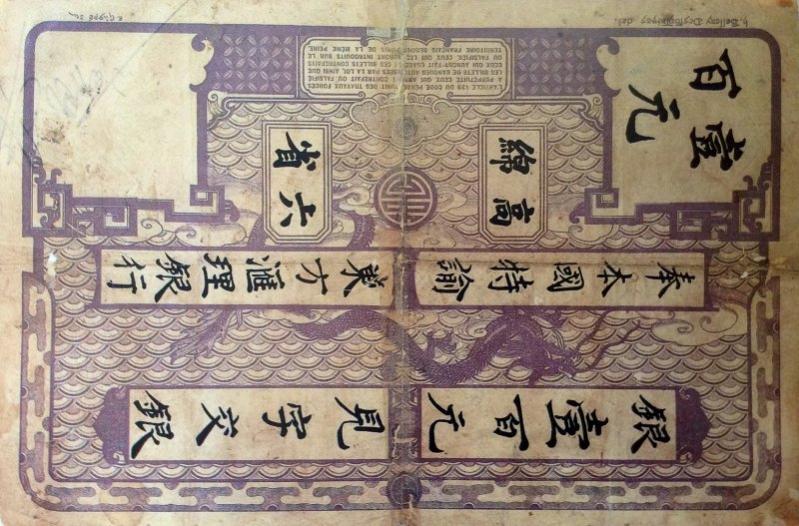 壹百元
高綿
六省
奉本國特諭
東方滙理銀行
銀壹百元
見字交銀
L'ARTICLE 139 DU CODE PÉNAL PUNIT DES TRAVAUX FORCÉS
A PERPÉTUITÉ CEUX QUI AURONT CONTREFAIT OU FALSIFIÉ
LES BILLETS DE BANQUES AUTORISÉES PAR LA LOI, AINSI QUE
CEUX QUI AURONT FAIT USAGE DE CES BILLETS CONTREFAITS
OU FALSIFIÉS. CEUX QUI LES AURONT INTRODUITS SUR LE
TERRITOIRE FRANÇAIS SERONT PUNIS DE LA MÊME PEINE.
Bellery Desfontaines del.